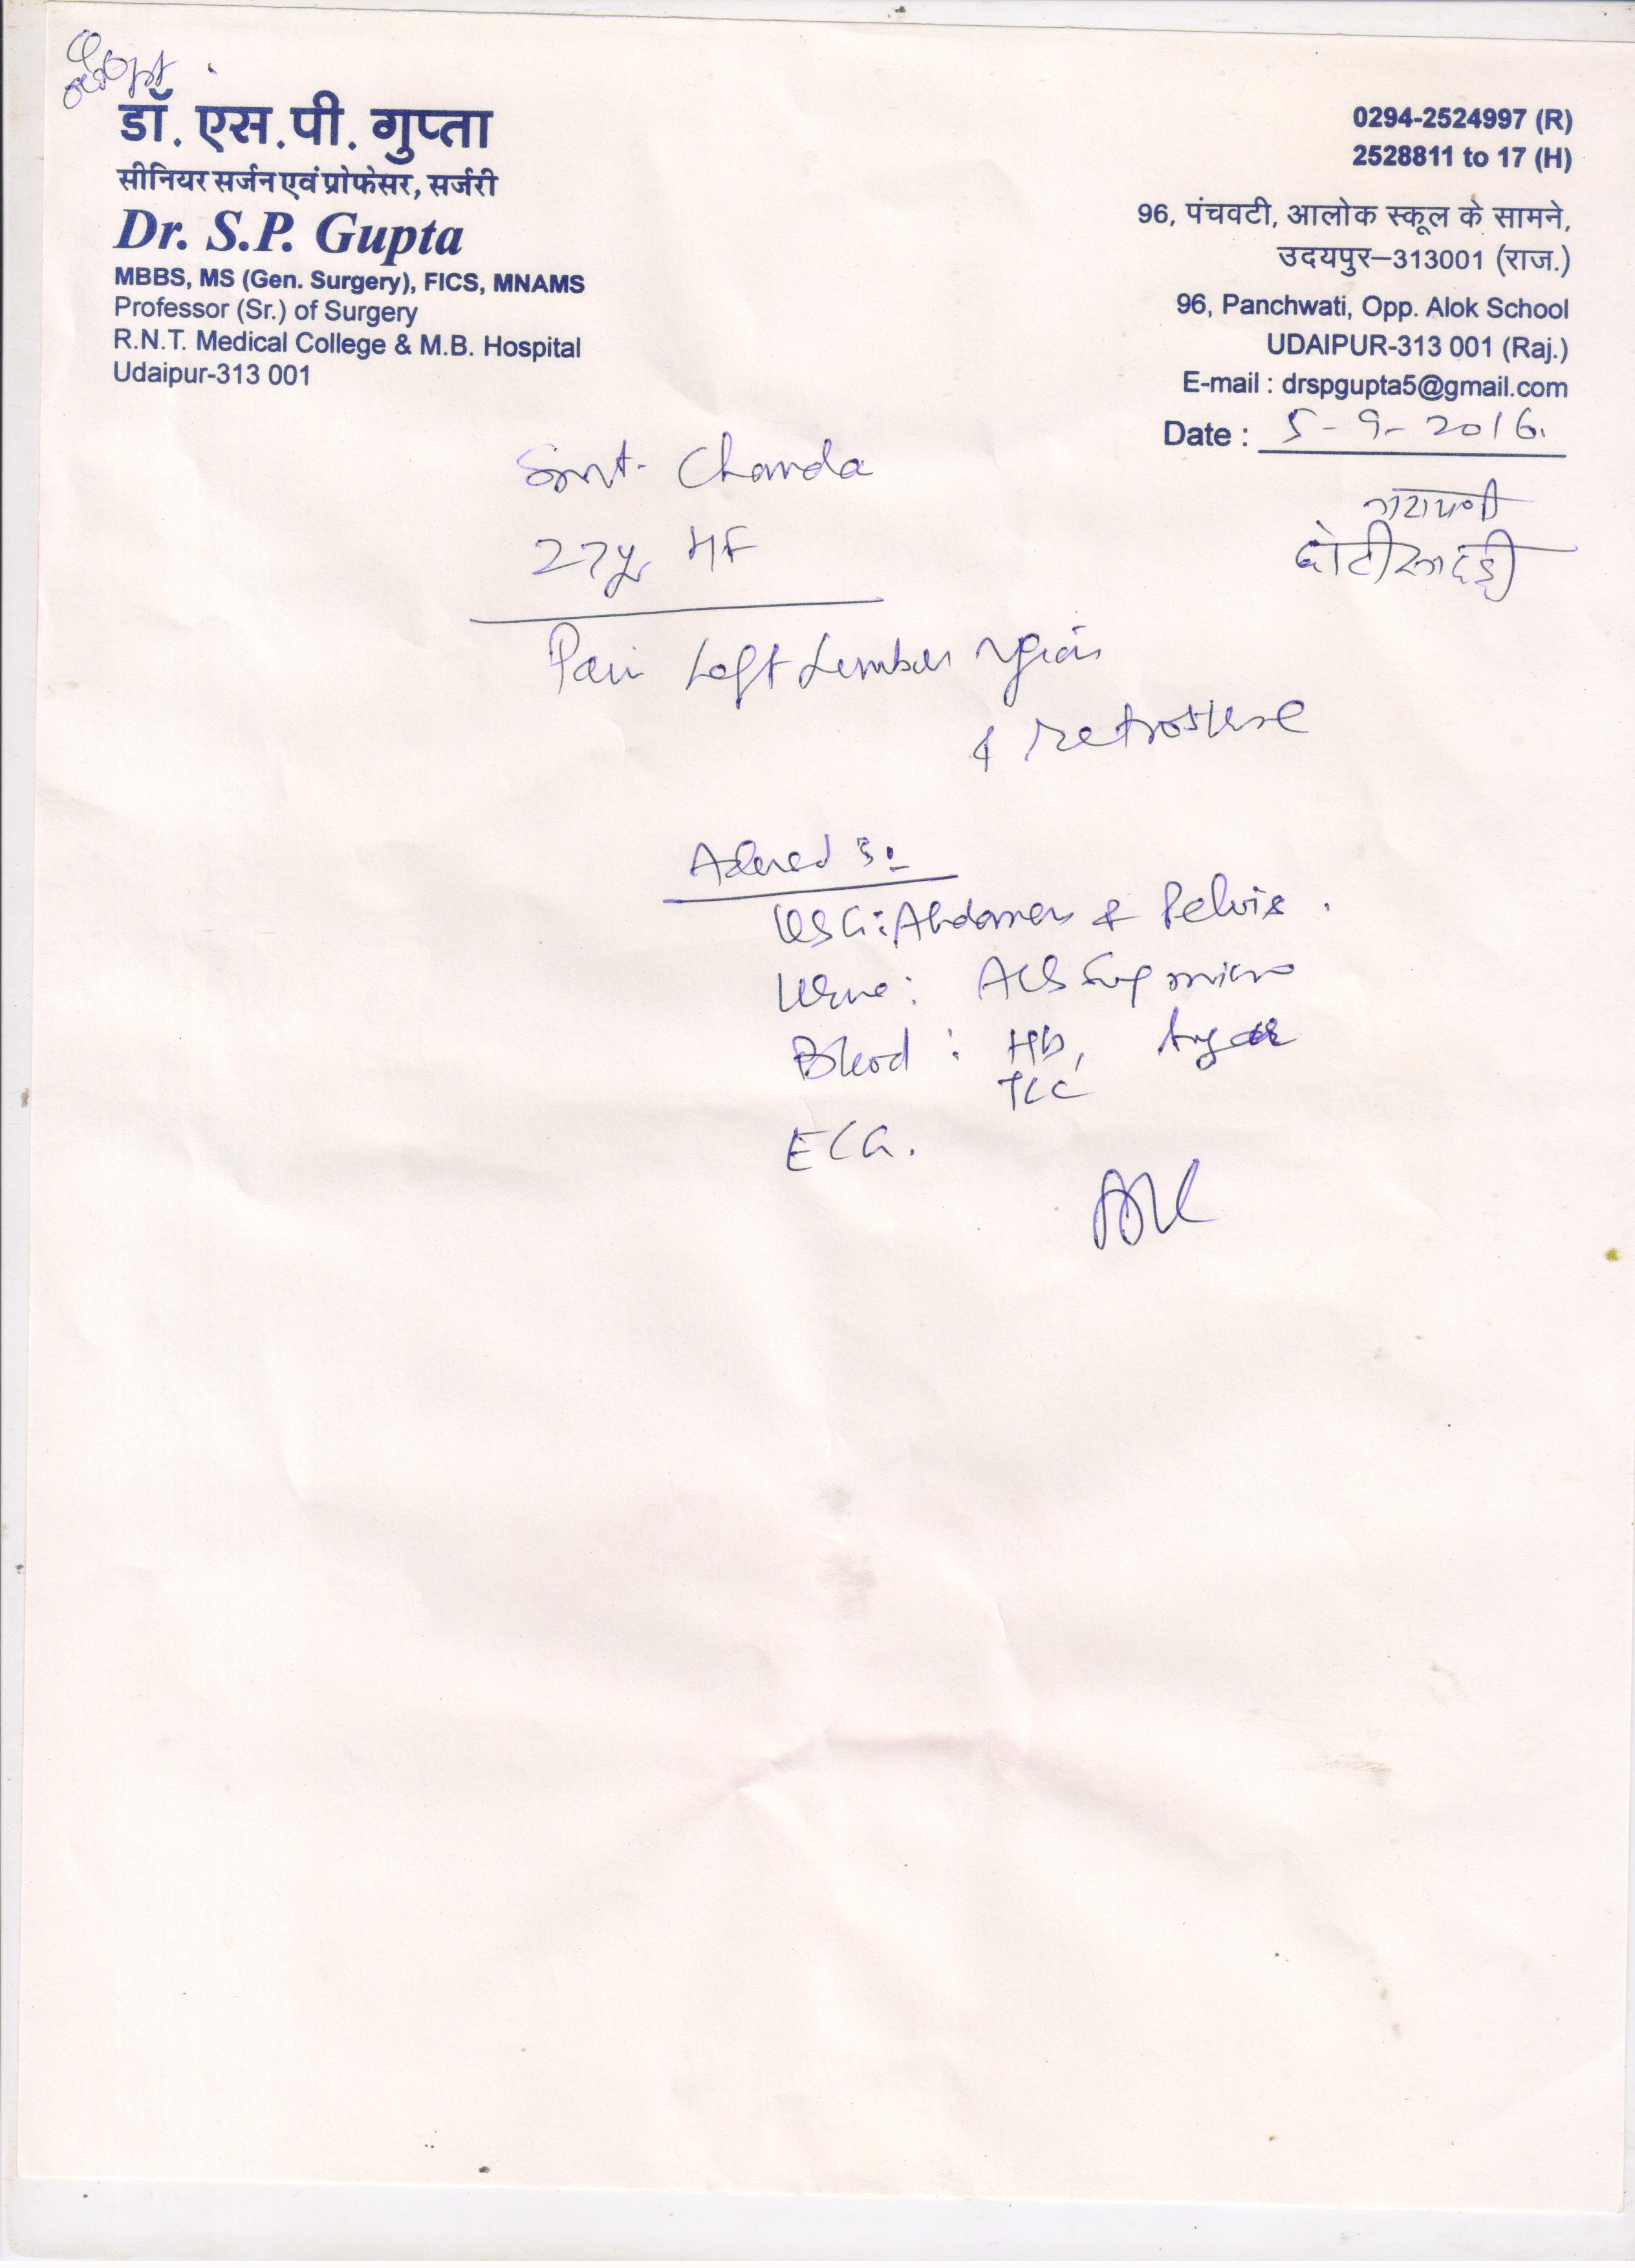 डॉ. एस. पी. गुप्ता
सीनियर सर्जन एवं प्रोफेसर, सर्जरी
Dr. S.P. Gupta
MBBS, MS (Gen. Surgery), FICS, MNAMS
Professor (Sr.) of Surgery
R.N.T. Medical College & M.B. Hospital
Udaipur-313 001
0294-2524997 (R)
2528811 to 17 (H)
96, पंचवटी, आलोक स्कूल के सामने,
उदयपुर–313001 (राज.)
96, Panchwati, Opp. Alok School
UDAIPUR-313 001 (Raj.)
E-mail : drspgupta5@gmail.com
Date : 5-9-2016.
छोटीसादड़ी
Smt. Chanda
27yr HF
Pain Left Lumbar region
& retrosterne
Advised :-
USG: Abdomen & Pelvis.
Urine: Alb Sug micro
Blood : Hb, Sugar
TLC
ECG.